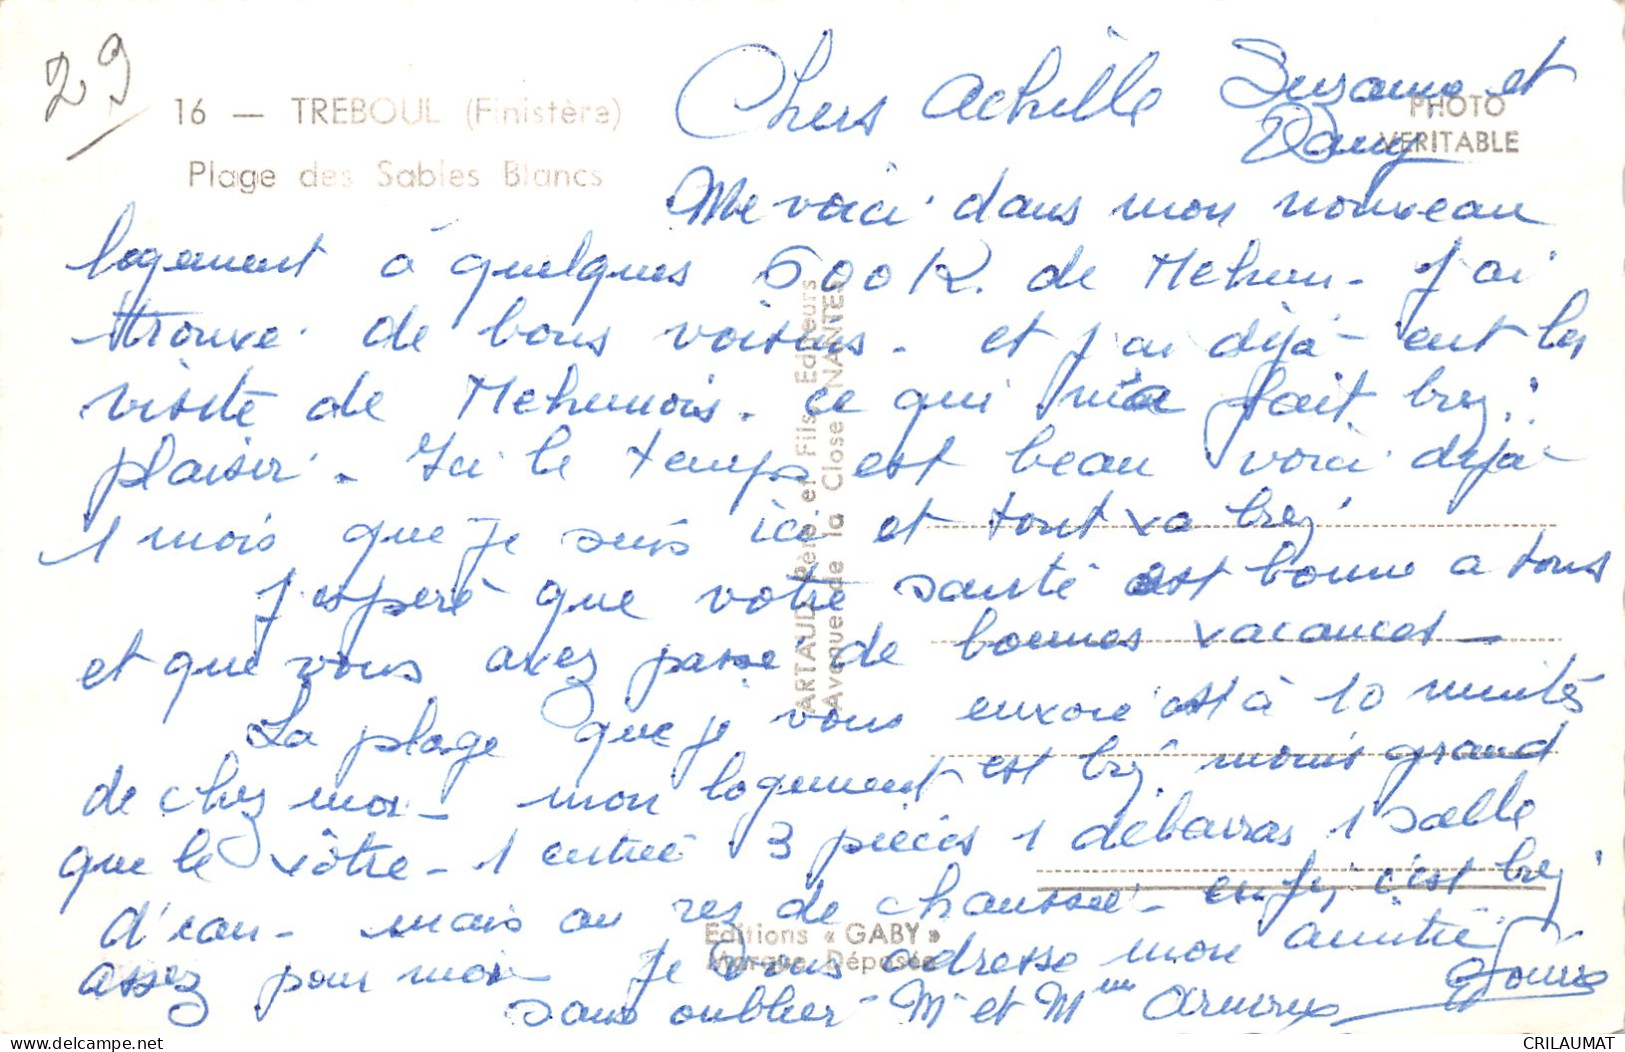 29
16 — TREBOUL (Finistère)
Plage des Sables Blancs
PHOTO
VERITABLE
Chers Achille Suzanne et
Dany
Me voici dans mon nouveau
logement à quelques 600 K. de Mehun - J'ai
trouvé de bons voisins - et j'ai déjà eut les
visite de Mehunois. ce qui m'a fait bien
plaisir. Ici le temps est beau voici déjà
1 mois que je suis ici et tout va bien
J'espère que votre santé est bonne a tous
et que vous avez passé de bonnes vacances -
La plage que je vous envoie est à 10 minutes
de chez moi - mon logement est bien moins grand
que le vôtre - 1 entrée 3 pièces 1 débarras 1 salle
d'eau - mais au rez de chaussée - enfin c'est bien
assez pour moi Je vous adresse mon amitié
sans oublier M et Mme
ARTAUD Père et Fils Editeurs
Avenue de la Close NANTES
Editions « GABY »
Marque Déposée
CRILAUMAT